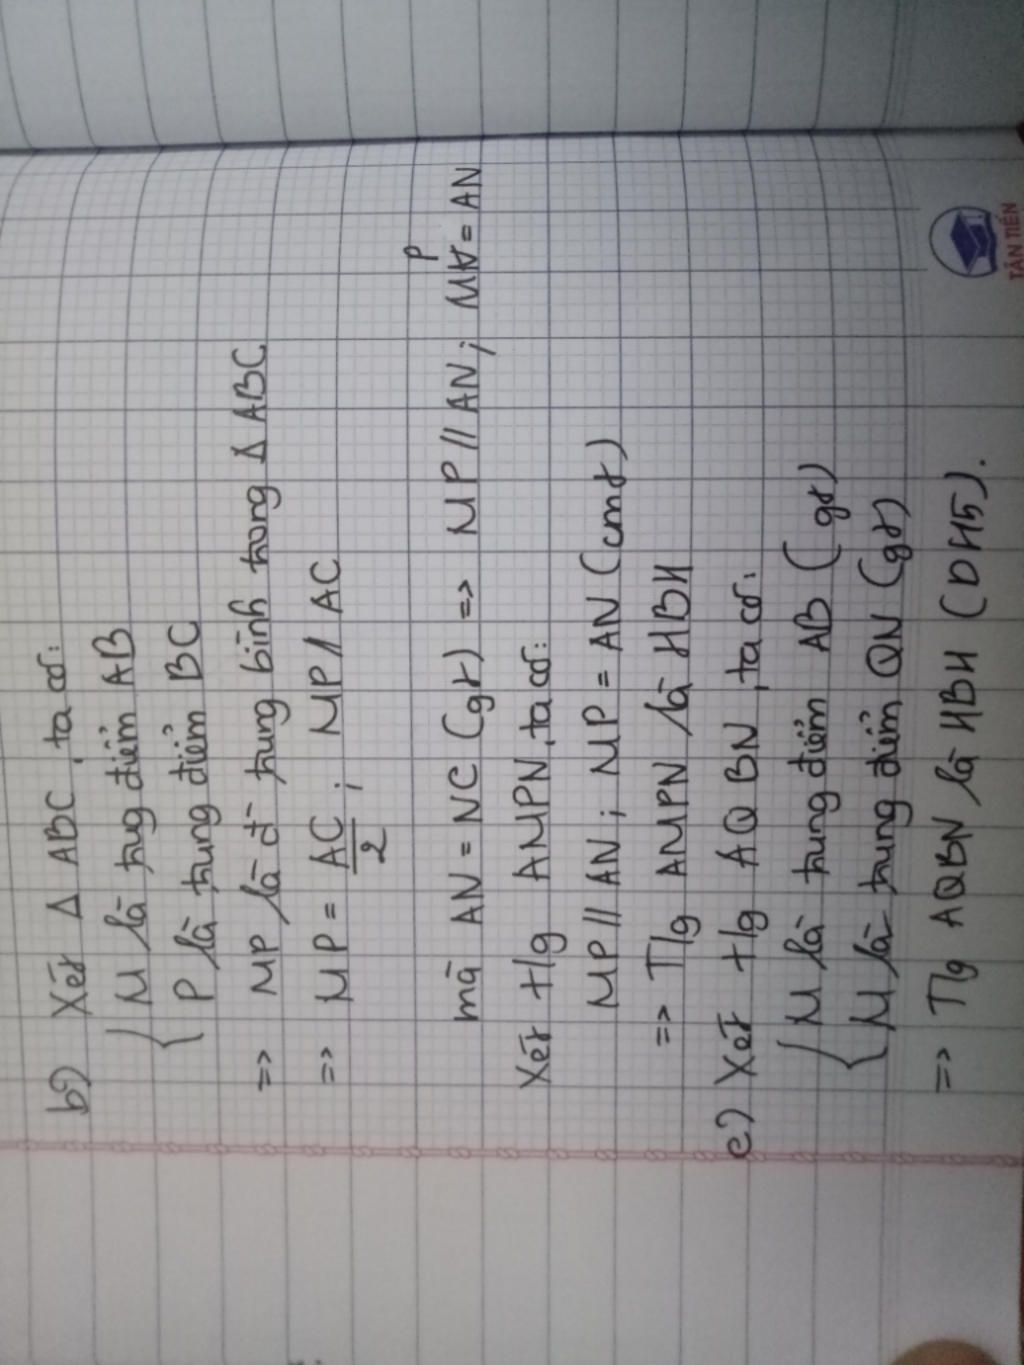 b) Xét Δ ABC, ta có:
M là trug điểm AB
P là trung điểm BC
=> MP là đ̀ trung bình trong Δ ABC
=> MP = AC/2 ; MP // AC
mà AN = NC (gt) => MP // AN ; MP = AN
Xét t/g AMPN, ta có:
MP // AN ; MP = AN (cmt)
=> T/g AMPN là HBH
c) Xét t/g AQBN, ta có:
M là trung điểm AB (gt)
M là trung điểm QN (gt)
=> T/g AQBN là HBH (DH5).
TÂN TIẾN